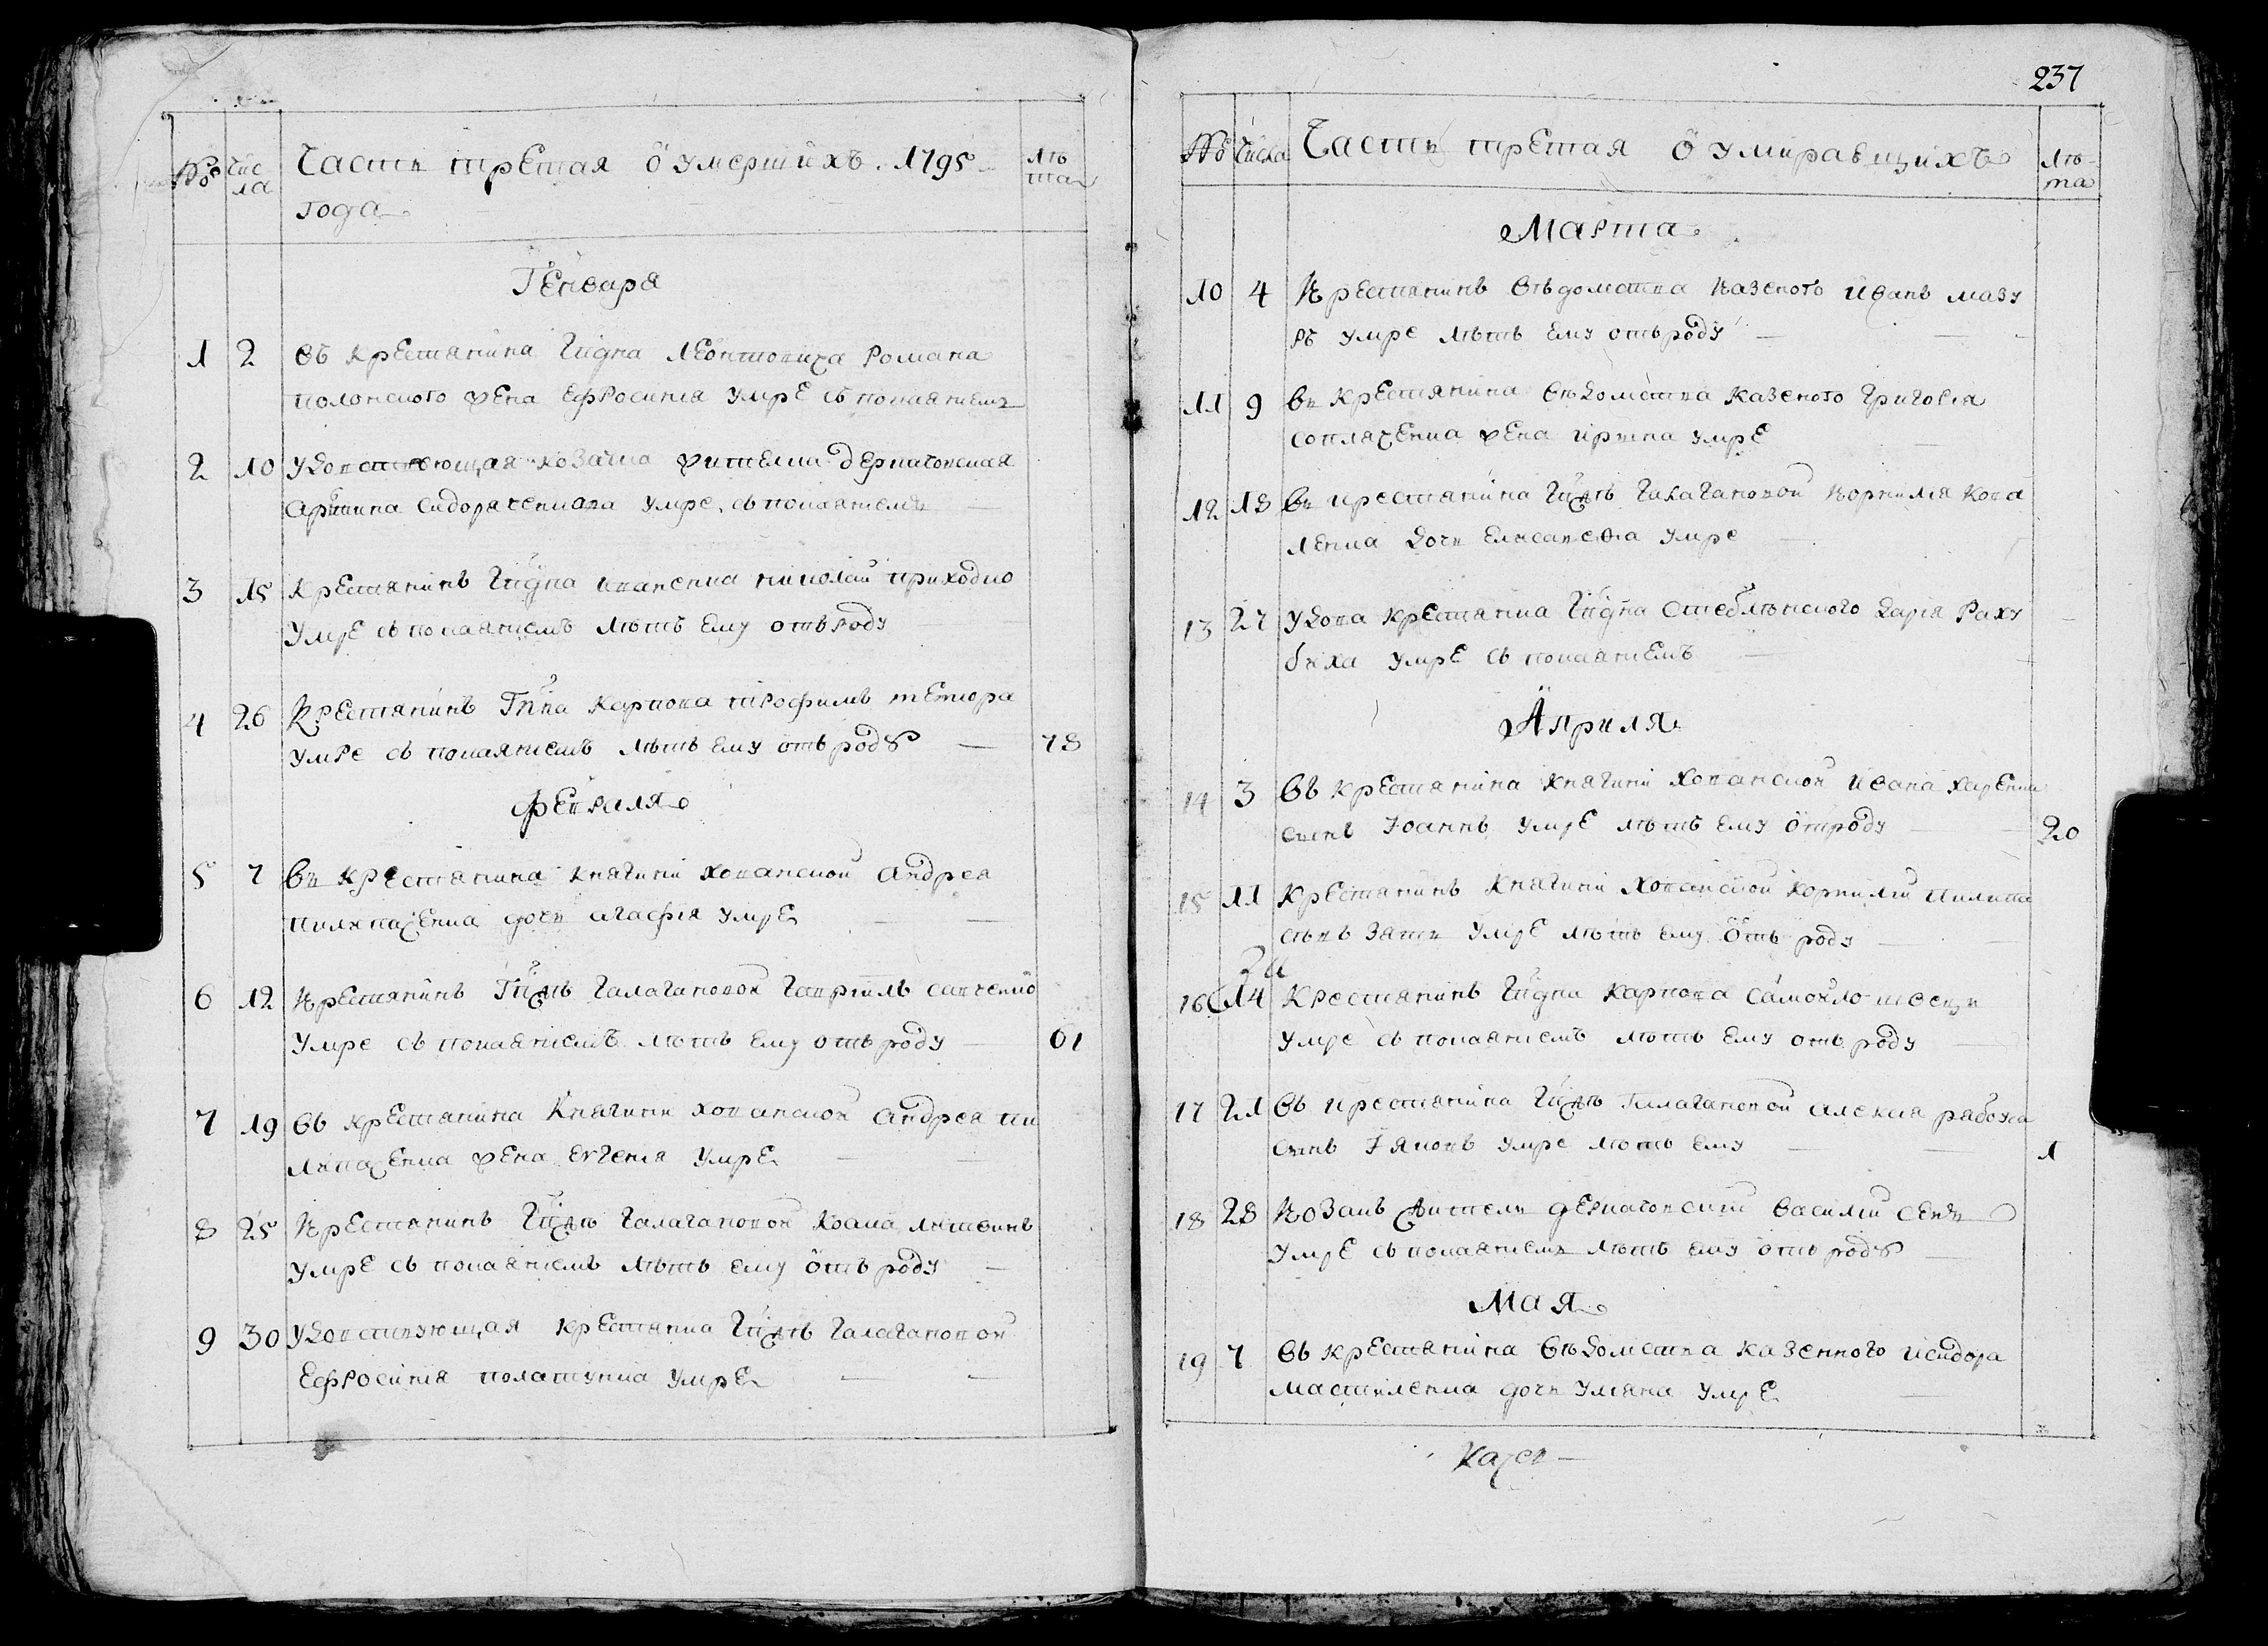 № Чис
ла Часть третая о умершихъ 1795 лѣ
та
года
Генваря
1 2 въ крестянина Гпдна Леонтовича Романа
полонского жена Ефросиния умре съ покаянием
2 10 удовствующая козачка жителка
Сидоряченкова умре съ покаянием
3 15 крестянинъ Гпдна николай приходко
умре съ покаяниемъ лѣтъ ему отъ роду
4 26 Крестянинъ Гпна Карпова трофимъ тетюра
умре съ покаяниемъ лѣтъ ему отъ роду 78
Февраля
5 7 въ крестянина княгини хованской андрея
пилипченка дочь агафія умре
6 12 крестянинъ Гпжѣ Галагановой Гавріилъ савченко
умре съ покаяниемъ лѣтъ ему отъ роду 61
7 19 въ крестянина Княгини хованской андрея пи
липченка жена евгения умре
8 25 крестянинъ Гпжѣ Галагановой литвинъ
умре съ покаяниемъ лѣтъ ему отъ роду
9 30 удовствующая крестянка Гпжѣ Галагановой
Ефросиния умре
237
№ Числа Часть третая о умиравщихъ лѣ
та
Марта
10 4 крестянинъ вѣдомства казеного иванъ мазу
ръ умре лѣтъ ему отъ роду
11 9 въ крестянина вѣдомства казеного григория
жена ирина умре
12 18 въ крестянина Гпжѣ Галагановой корнилия кова
ленка дочь елисавета умре
13 27 удова крестянка Гпдна стеблѣнского дария Раху
биха умре съ покаяниемъ
Априля
14 3 въ крестянина княгини хованской ивана харенка
синъ Иоаннъ умре лѣтъ ему отроду 20
15 11 крестянинъ княгини хованской корнилий пилипа
зять умре лѣтъ ему отъ роду
16 14 крестянинъ Гпдна карпова самойло швець
умре съ покаяниемъ лѣтъ ему отъ роду
17 21 въ крестянина Гпжѣ Галагановой алексия рябоха
синъ Іяковъ умре лѣтъ ему 1
18 28 козакъ житель василий
умре съ покаяниемъ лѣтъ ему отъ роду
Мая
19 7 въ крестянина вѣдомства казенного исидора
дочь уляна умре